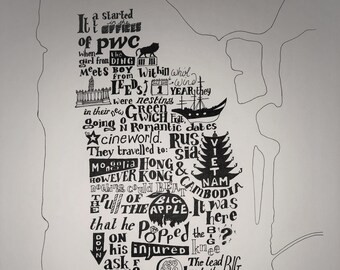 It all started in the OFFICES
of pwc
when girl from THE DING
MEETS BOY from Within
LEEDS! 1 whirl wind YEAR they
were nesting
in their own GREENWICH Flat,
going on Romantic dates
cineworld. RUSSIA
They travelled to: &
MONGOLIA HONG KONG VIETNAM
HOWEVER & CAMBODIA
nothing could BEAT
THE PULL OF THE BIG APPLE. It was
here
that he POPPED THE BIG ?
DOWN ON his injured knee
ask The lead BIG